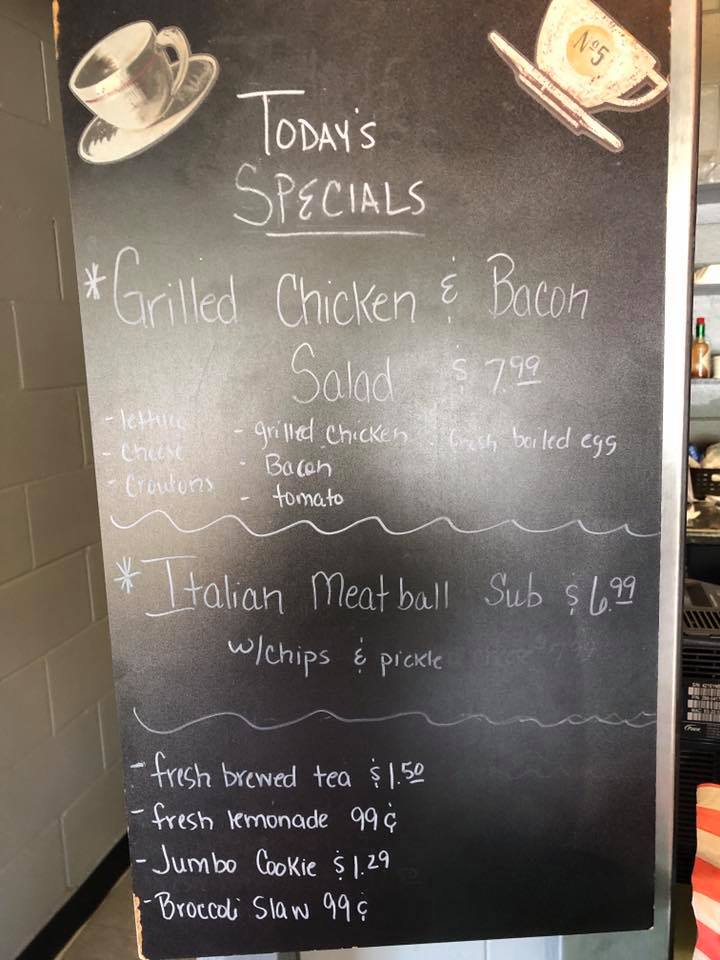 Nº5
TODAY'S
SPECIALS
*Grilled Chicken & Bacon
Salad $7.99
- lettuce - grilled chicken - fresh boiled egg
- Cheese - Bacon
- Croutons - tomato
*Italian Meatball Sub $6.99
w/chips & pickle
- fresh brewed tea $1.50
- fresh lemonade 99¢
- Jumbo Cookie $1.29
- Broccoli Slaw 99¢